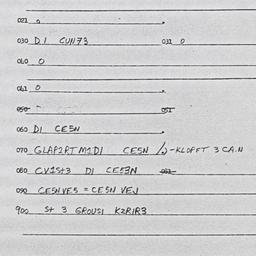 021 o
030 DI CUN73 031 0
060 O
061 0
050 051
060 DI CESN
070 GLAP2RT M1DI CESN -KLOFFT 3 CA.N
080 CV1S+3 DI CES3N 081
090 CESNVES = CESN VEJ
900 S+ 3 GROUSI K2RIR3